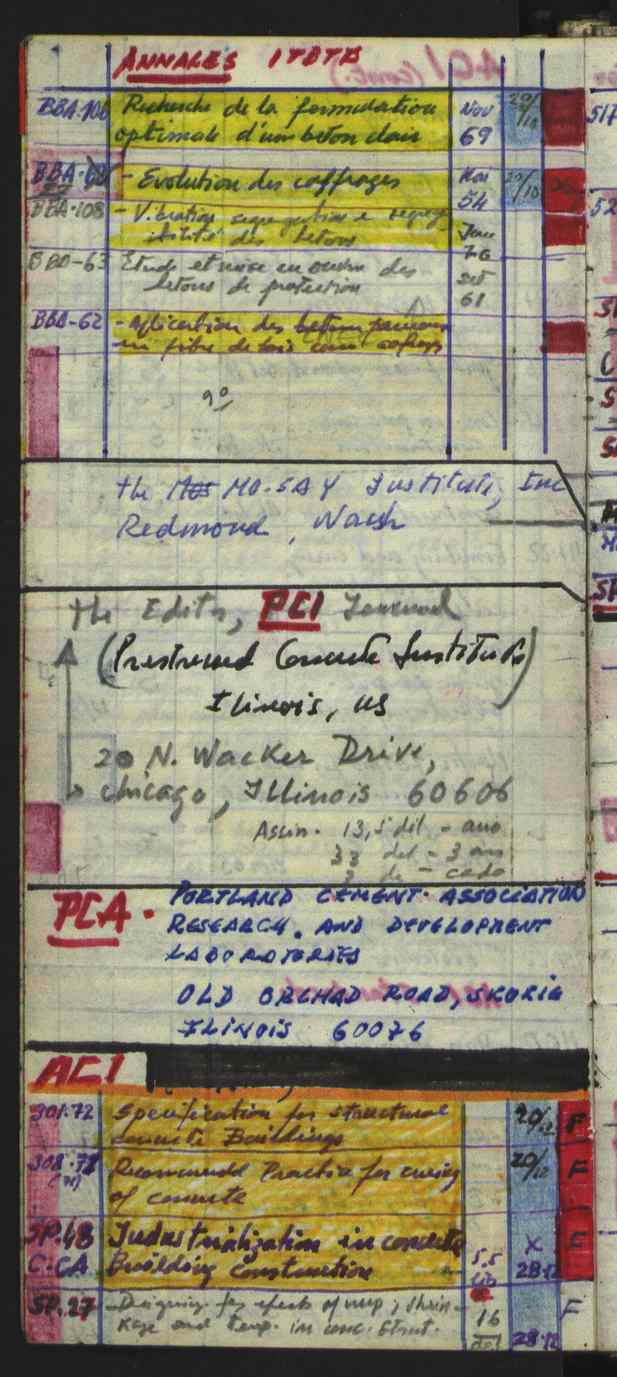 ANNALES ITBTP
BBA-106 Recherche de la formulation Nov 20/10
optimale d'un beton clair 69
BBA- - Evolution des coffrages Mai 20/10
54
BBA-108 - Vibration segregation e
des betons 76
BBD-63 Etude et mise en oeuvre des
betons de protection 61
BBB-62 - Aplication des beton
un fibre de bois
The MO-SAY Institute, Inc
Redmond, Wash
The Editor, PCI Journal
(Prestressed Concrete Institute)
Illinois, US
20 N. Wacker Drive,
chicago, Illinois 60606
Assin. 13,5 dil - ano
33 del - 3 ans
3 de - cada
PCA. PORTLAND CEMENT ASSOCIATION
RESEARCH. AND DEVELOPMENT
LABORATORIES
OLD ORCHAD ROAD, SKOKIE
ILINOIS 60076
ACI
301.72 Specification for structural 20/12 F
concrete Buildings
308.71 Recommended Practice for curing 20/12 F
of concrete
SP.48 Industrialization in concrete 5.5 X F
C.CA Building construction 28.12
SP.27 - Designing for effects of creep, shrin- 16 F
kage and temp. in conc. Struct. del 28.12